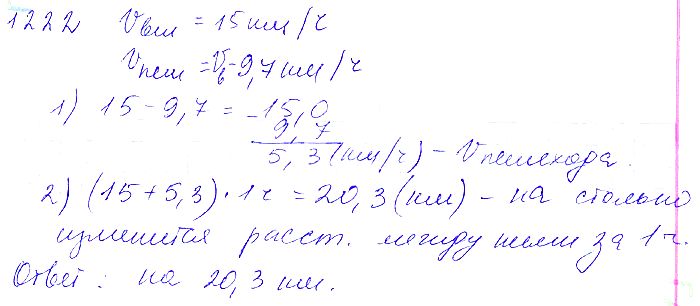 1222 Vвел = 15 км/ч
Vпеш = Vв - 9,7 км/ч
1) 15 - 9,7 = - 15,0
9,7
5,3 (км/ч) - Vпешехода.
2) (15 + 5,3) · 1ч = 20,3 (км) - на столько
изменится расст. между ними за 1 ч.
Ответ: на 20,3 км.